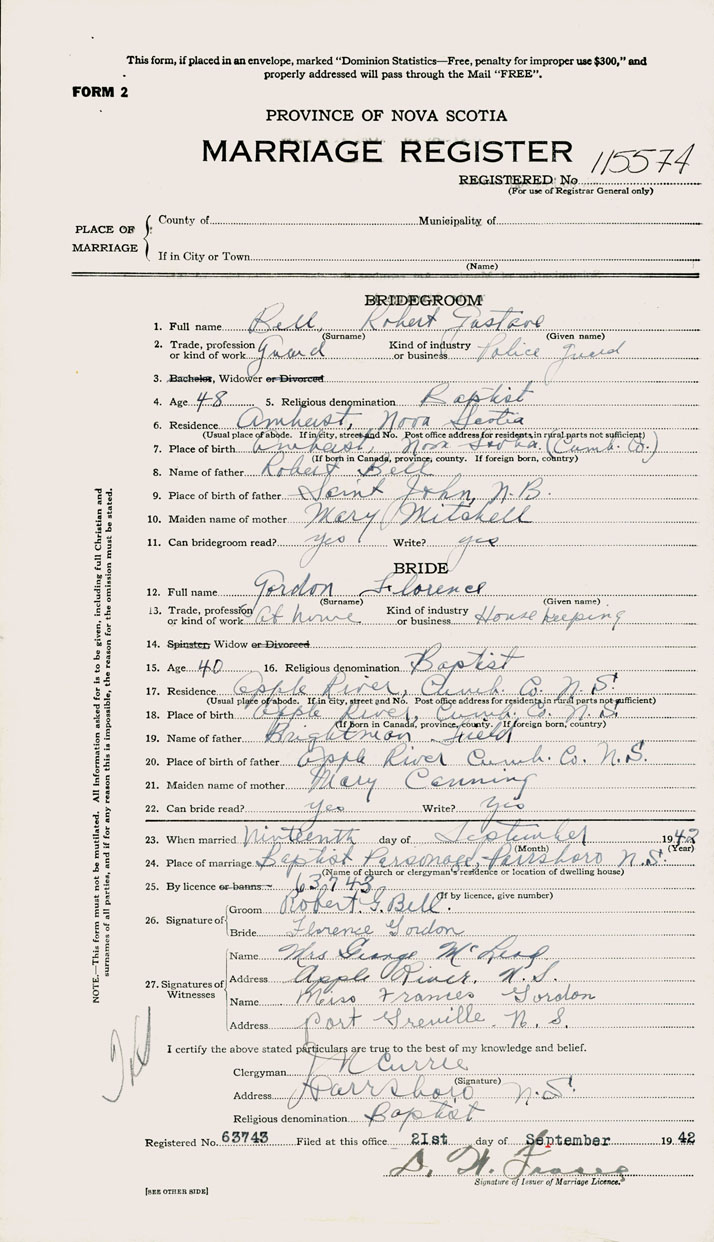 This form, if placed in an envelope, marked "Dominion Statistics—Free, penalty for improper use $300," and
properly addressed will pass through the Mail "FREE".
FORM 2
PROVINCE OF NOVA SCOTIA
MARRIAGE REGISTER
115574
REGISTERED No
(For use of Registrar General only)
PLACE OF MARRIAGE
County of Municipality of
If in City or Town
(Name)
BRIDEGROOM
1. Full name Bell, Robert Gustave
(Surname) (Given name)
2. Trade, profession or kind of work Guard Kind of industry or business Police guard
3. Bachelor, Widower or Divorced
4. Age 48 5. Religious denomination Baptist
6. Residence Amherst, Nova Scotia
(Usual place of abode. If in city, street and No. Post office address for residents in rural parts not sufficient)
7. Place of birth Amherst, Nova Scotia (Cumb. Co.)
(If born in Canada, province, county. If foreign born, country)
8. Name of father Robert Bell
9. Place of birth of father Saint John, N.B.
10. Maiden name of mother Mary Mitchell
11. Can bridegroom read? yes Write? yes
BRIDE
12. Full name Gordon Florence
(Surname) (Given name)
13. Trade, profession or kind of work at home Kind of industry or business House keeping
14. Spinster, Widow or Divorced
15. Age 40 16. Religious denomination Baptist
17. Residence Apple River, Cumb. Co. N.S.
(Usual place of abode. If in city, street and No. Post office address for residents in rural parts not sufficient)
18. Place of birth Apple River, Cumb. Co. N.S.
(If born in Canada, province, county. If foreign born, country)
19. Name of father Brightman Field
20. Place of birth of father Apple River Cumb. Co. N.S.
21. Maiden name of mother Mary Canning
22. Can bride read? yes Write? yes
23. When married Ninteenth day of September 1942
(Month) (Year)
24. Place of marriage Baptist Parsonage, Parrsboro N.S.
(Name of church or clergyman's residence or location of dwelling house)
25. By licence or banns 63743
(If by licence, give number)
26. Signature of
Groom Robert G. Bell.
Bride Florence Gordon
27. Signatures of Witnesses
Name Mrs George McLeod
Address Apple River, N.S.
Name Miss Frances Gordon
Address Port Greville. N.S.
I certify the above stated particulars are true to the best of my knowledge and belief.
Clergyman J N Currie
(Signature)
Address Parrsboro N.S.
Religious denomination Baptist
Registered No. 63743 Filed at this office 21st day of September 1942
D. W. Fraser
Signature of Issuer of Marriage Licence.
[SEE OTHER SIDE]
NOTE.—This form must not be mutilated. All information asked for is to be given, including full Christian and
surnames of all parties, and if for any reason this is impossible, the reason for the omission must be stated.